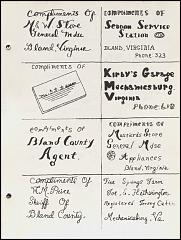 Compliments Of
General Mdse
Bland, Virginia
Compliments of
Seagon Service
Station
BLAND, VIRGINIA
Phone 323
COMPLIMENTS OF
Kirby's Garage
Mechanicsburg,
Virginia
Phone 618
Compliments of
Bland County
Agent.
Compliments of
Mustards Store
General Mdse
&
Appliances
Bland, Virginia
Compliments Of
Price
Sheriff Of
Bland County.
The Springs Farm
Registered Jersey Cattle
Mechanicsburg, Va.